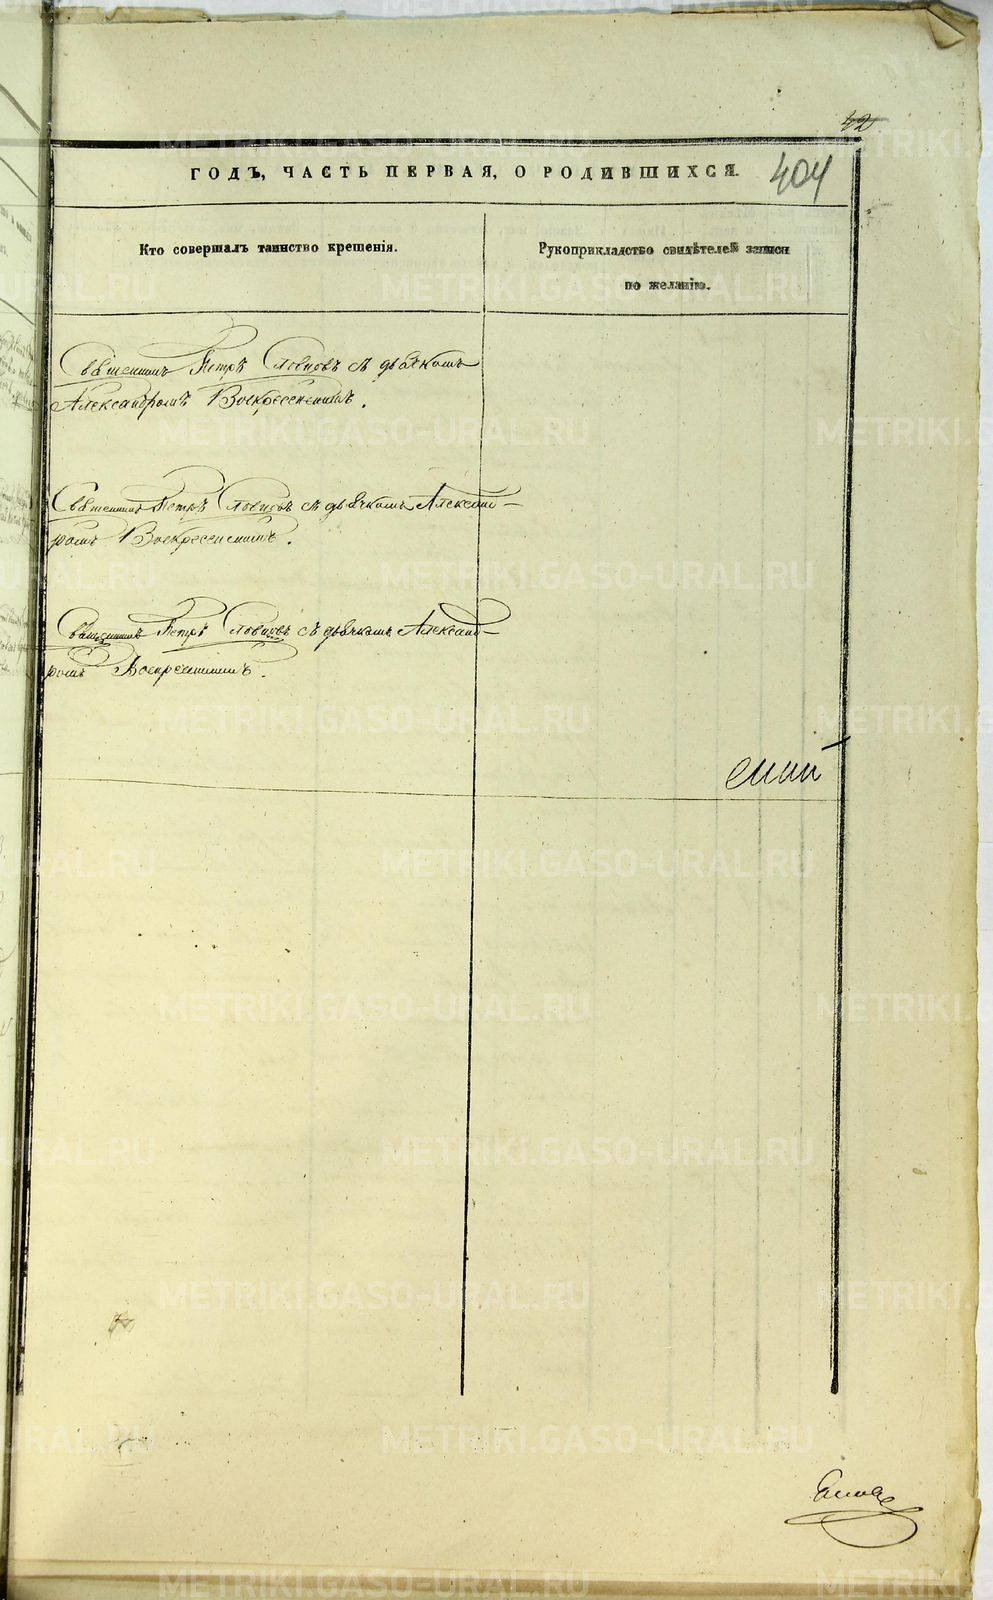 42
ГОДЪ, ЧАСТЬ ПЕРВАЯ, О РОДИВШИХСЯ.
404
Кто совершалъ таинство крещенія.
Рукоприкладство свидѣтелей записи
по желанію.
Священникъ Петръ Словцовъ съ дьячкомъ
Александромъ Воскресенскимъ.
Священникъ Петръ Словцовъ съ дьячкомъ Александ-
ромъ Воскресенскимъ.
Священникъ Петръ Словцовъ съ дьячкомъ Александ-
ромъ Воскресенскимъ.
METRIKI.GASO-URAL.RU